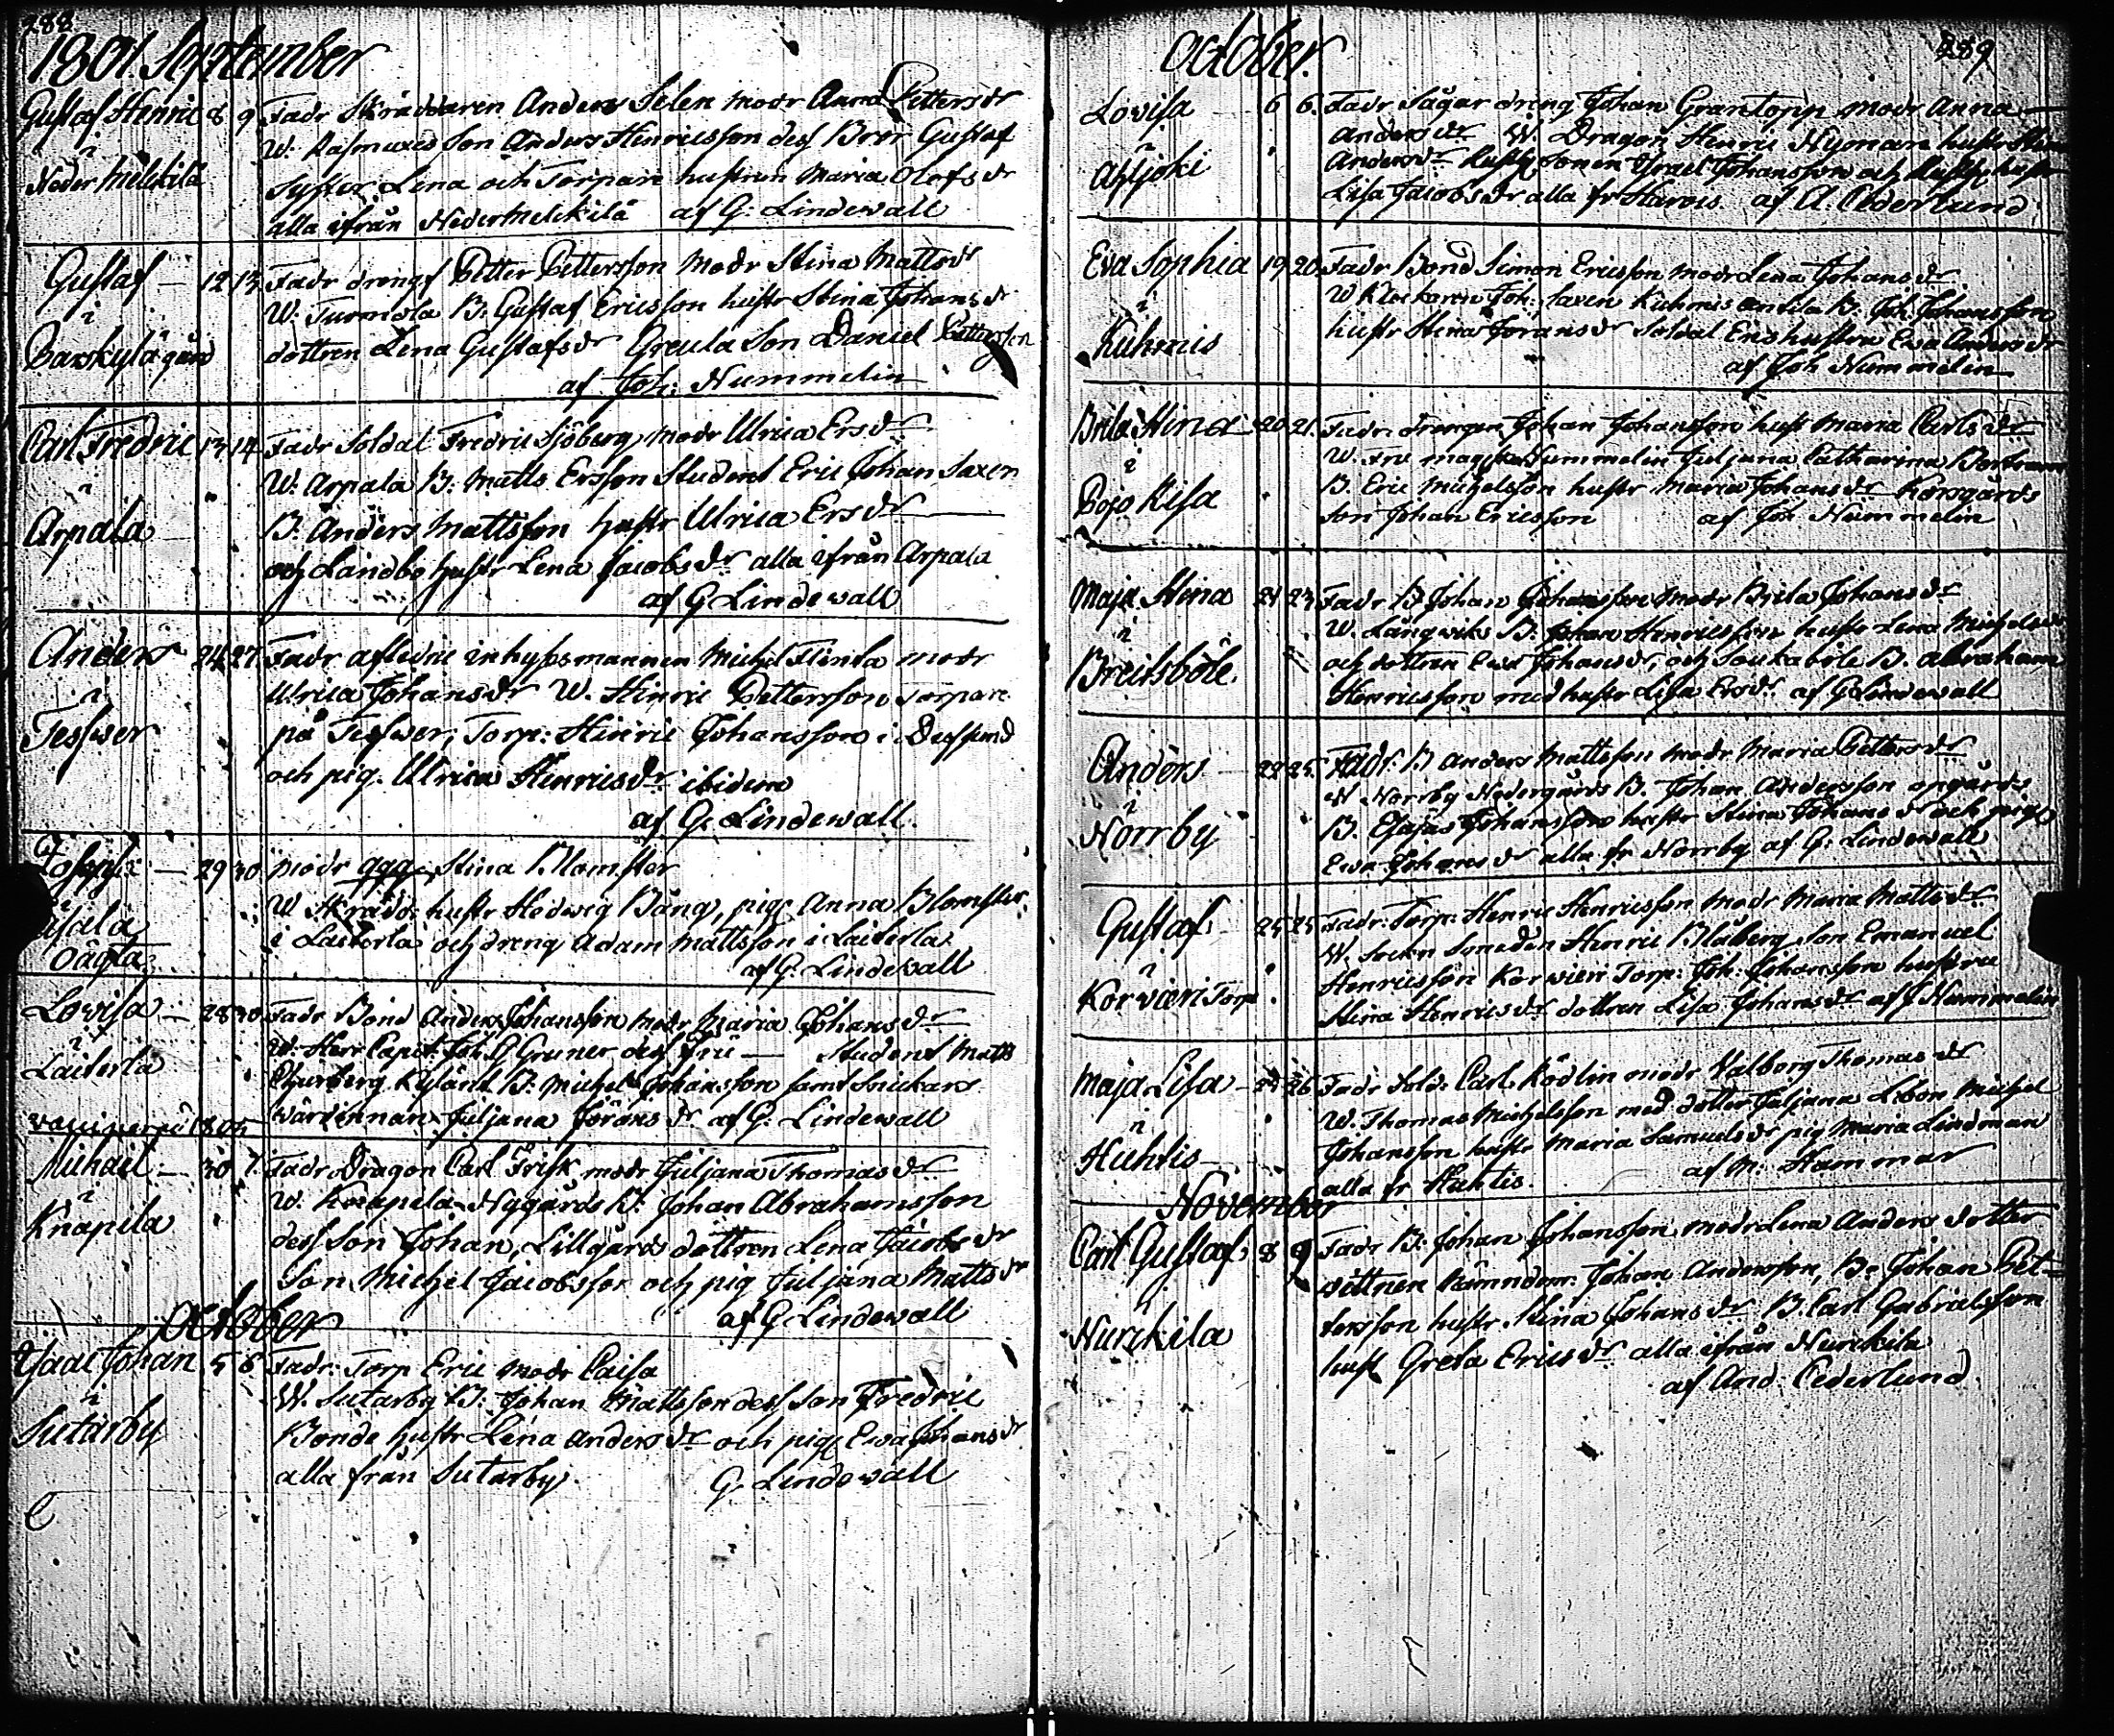 288
1801. September
Gustaf Henric 8 9 Fadr Skräddaren Anders Selen modr Anna Pettersdr
i W. Rasmuxes Son Anders Henricsson dess Bror Gustaf
Neder Melckilä Syster Lena och Torpare hustrun Maria Olofsdr
alla ifrån Nedermelckilä af G: Lindewall
Gustaf 12 13 Fadr drengf Petter Pettersson Modr Stina Mattsdr
i W. Tuomola B. Gustaf Ericsson hustr Stina Johansdr
gård dottren Lena Gustafsdr Greula Son Daniel Pettersson
af Joh: Nummelin
Carl Fredric 13 14 Fadr Soldat Fredric Sjöberg modr Ulrica Ersdr
i W. Arpala B: Matts Ersson Student Eric Johan Saxen
Arpala B. Anders Mattsson hustr Ulrica Ersdr
och Landbo hustr Lena Jacobsdr alla ifrån Arpala
af G Lindewall
Anders 24 27 Fadr aflednе inhysesmannen Michel Flinta modr
i Ulrica Johansdr W. Hinric Pettersson Torpare
Tesswer på Tesswer, Torp: Hinric Johansson i
och pig. Ulrica Hinricsdr ibidem
af G. Lindewall
Joseph 29 30 modr qqq Stina Blomster
i W Skrädd: hustr Hedwig Bång, pig Anna Blomster
i Laiterla och dreng Adam Mattsson i Laiterla
af G. Lindewall
Lovisa 28 30 Fadr Bond Anders Johansson modr Maria Johansdr
i W. Herr Capit: Joh. G Gruner dess Fru — Student Matts
Laiterla Churberg B. Michel Johansson samt Snickare
vaccinerad 1805 wärdinnan Juljana Jöransdr af G. Lindewall
Michael 30 7. Fadr Dragon Carl Frisk modr Juljana Thomasdr
i W. Knapila Nygårds B. Johan Abrahamsson
Knapila dess Son Johan, Lillgårds dottren Lena Jacobsdr
Son Michel Jacobsson och pig Juljana Mattsdr
October af G Lindewall
Isaac Johan 5 6 Fadr. Torp Eric modr Caisa
i W. Sutarby B: Johan Mattsson dess Son Fredric
Sutarby Bonde hustr Lena Andersdr och pig Ewa Johansdr
alla från Sutarby. G. Lindewall
289
October.
Lovisa 6 6. Fadr Sågar dreng Johan Grantopp modr Anna
i Andersdr W. Dragon Henric Nyman hustr Stina
Andersdr Sonen Israel Johansson och hustr
Lisa Jacobsdr alla fr Harvis. af A Cederlund
Eva Sophia 19 20. Fadr Bond Simon Ericsson modr Lena Johansdr
i W Klockaren Joh: Saxen Kuhmis B. Joh. Johansson
Kuhmis hustr Stina Jöransdr Soldat Ers hustru Ewa Andersdr
af Joh Nummelin
Brita Stina 20 21. Fadr. drengen Johan Johansson hust Maria Carlsdr
i W. Fru Nummelin Juljana Catharina
Pojo Kisa B. Eric Michelsson hustr Maria Johansdr
Son Johan Ericsson af Joh Nummelin
Maja Stina 21 23 Fadr B Johan Johansson modr Brita Johansdr
i W. Långwiks B. Johan Henricsson hustr Lena Michelsdr
Breitsböle. och dottren Ewa Johansdr, och Soukaböle B. Abraham
Henricsson med hustr Lisa Ersdr. af G Lindewall
Anders 22 25. Fadr. B Anders Mattsson modr Maria Pettersdr
i W Norrby Nedergårds B. Johan Andersson opgårds
Norrby B. Esajas Johansson hustr Stina Johansdr och pig
Ewa Johansdr alla fr Norrby af G: Lindewall
Gustaf 25 25 Fadr: Torp: Henric Henricsson modr Maria Mattsdr
i W. Henric Blåberg Son Emanuel
Korvieri Torp Henricsson Korvieri Torp: Joh: Johansson hustru
Stina Henricsdr dottren Lisa Johansdr af J Nummelin
Maja Lisa 24 26 Fadr Sold: Carl Rödlin modr Valborg Thomasdr
i W. Thomas Michelsson med dotter Juljana Michel
Huhtis Johansson hustr Maria Samuelsdr pig Maria Lindman
alla fr Huhtis. af M. Hammar
November
Carl Gustaf 8 9 Fadr B. Johan Johansson modr Lena Anders dotter
i Wittnen Nämndem: Johan Andersson, B. Johan Pet-
Nurckila tersson hustr Stina Johansdr B. Carl Gabrielsson
hust Greta Ericsdr alla ifrån Nurckila
af And. Cederlund